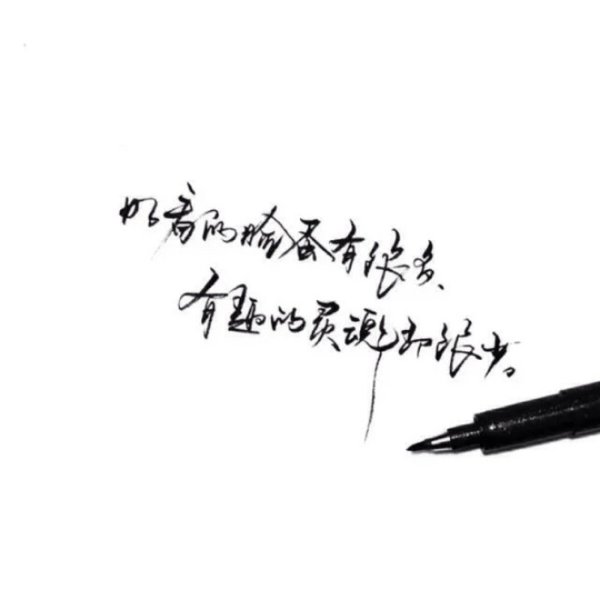 好看的脸蛋有很多、
有趣的灵魂却很少。